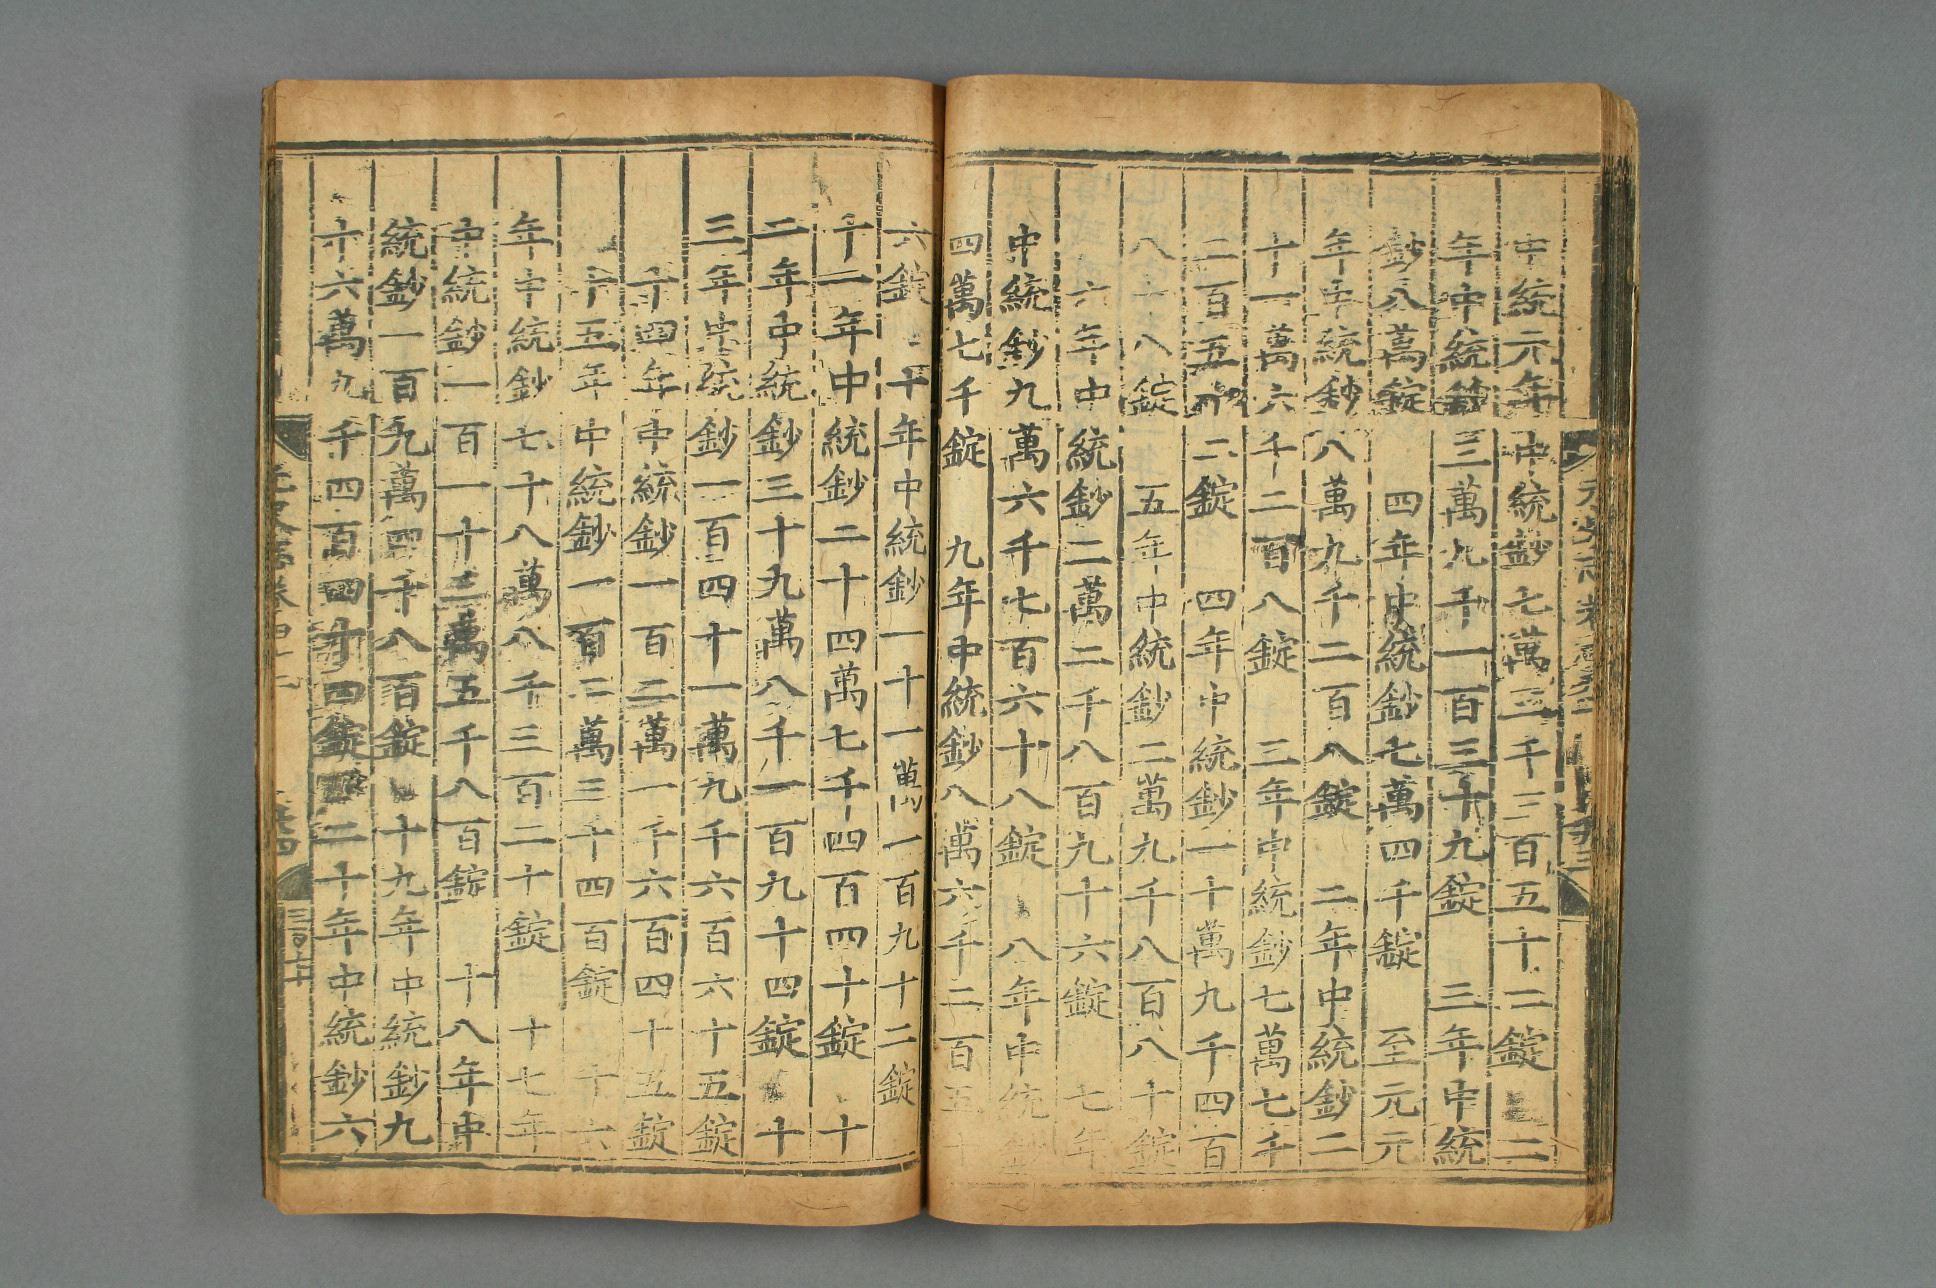 中統元年中統鈔七萬三千三百五十二錠 二
年中統鈔三萬九千一百三十九錠 三年中統
鈔八萬錠 四年中統鈔七萬四千錠 至元元
年中統鈔八萬九千二百八錠 二年中統鈔二
十一萬六千二百八錠 三年中統鈔七萬七千
二百五 二錠 四年中統鈔一十萬九千四百
八 八錠 五年中統鈔二萬九千八百八十錠
六年中統鈔二萬二千八百九十六錠 七年
中統鈔九萬六千七百六十八錠 八年中統鈔
四萬七千錠 九年中統鈔八萬六千二百五十
六錠 十年中統鈔一十一萬一百九十二錠
十一年中統鈔二十四萬七千四百四十錠 十
二年中統鈔三十九萬八千一百九十四錠 十
三年中統鈔一百四十一萬九千六百六十五錠
十四年中統鈔一百二萬一千六百四十五錠
十五年中統鈔一百二萬三千四百錠 十六
年中統鈔七十八萬八千三百二十錠 十七年
中統鈔一百一十三萬五千八百錠 十八年中
統鈔一百九萬四千八百錠 十九年中統鈔九
十六萬九千四百四十四錠 二十年中統鈔六